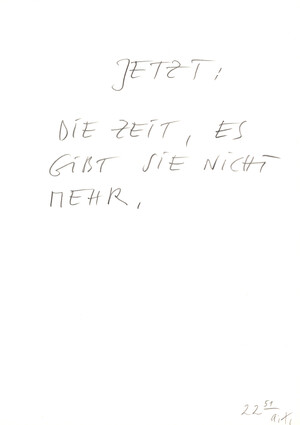 JETZT:
DIE ZEIT, ES
GIBT SIE NICHT
MEHR.
22 51